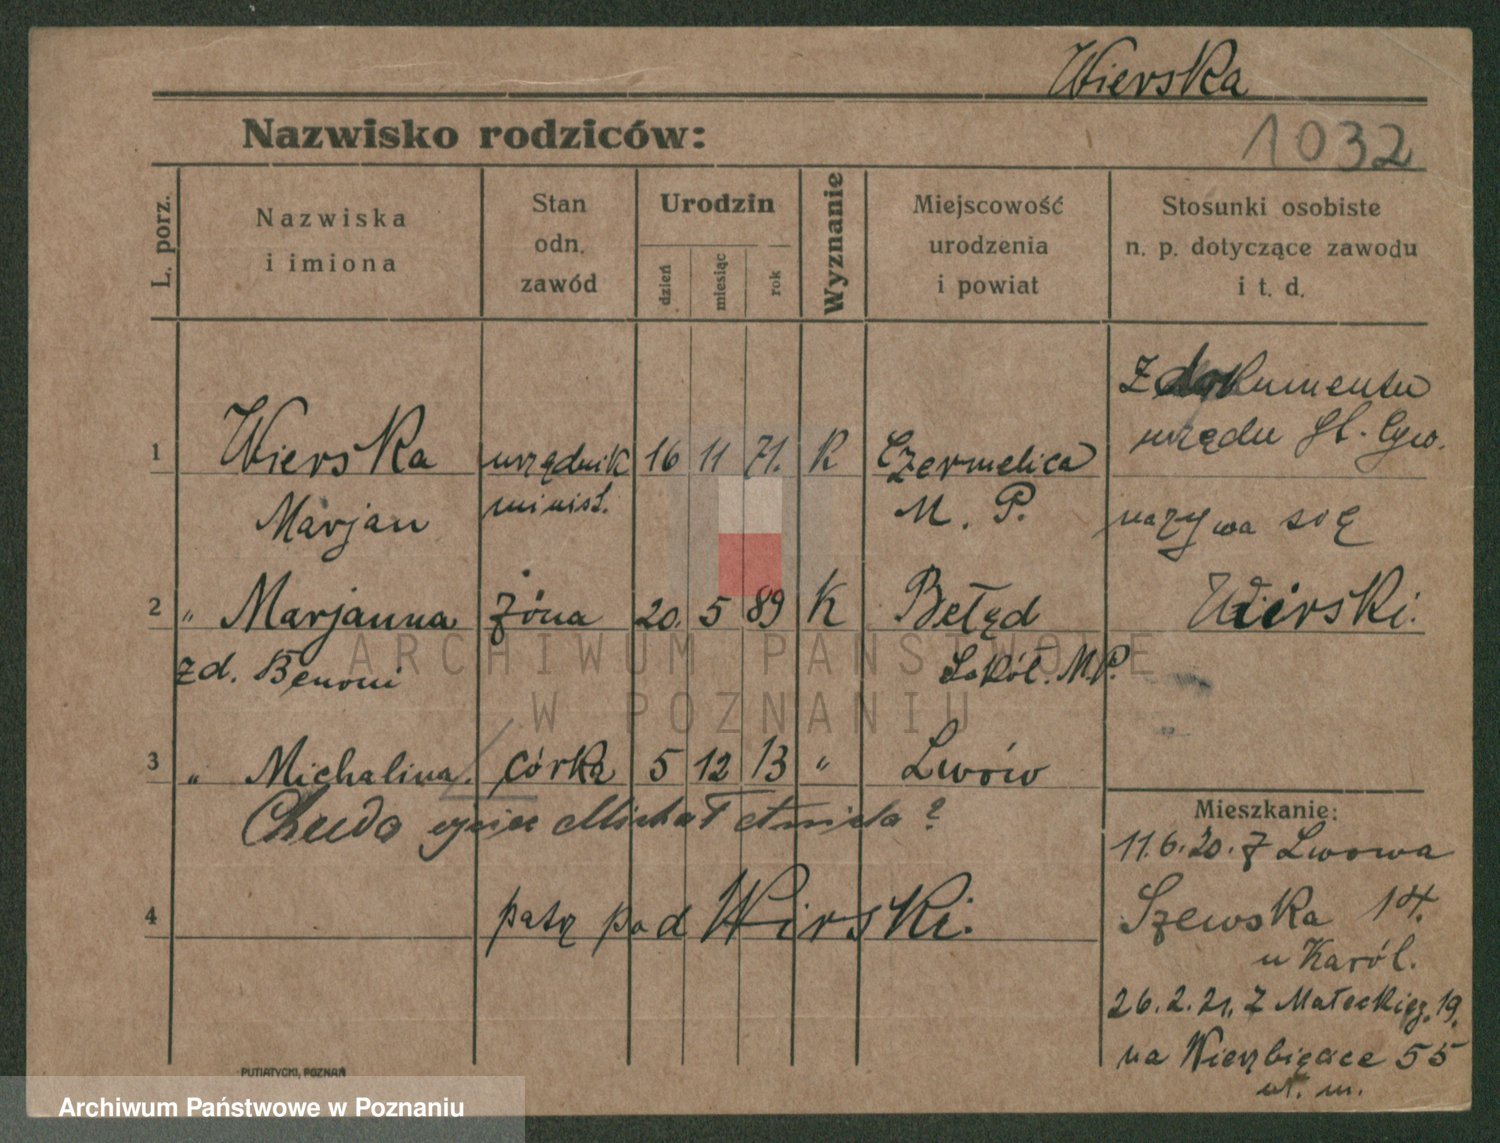 Wierska
Nazwisko rodziców:
1032
L. porz.
Nazwiska
i imiona
Stan
odn.
zawód
Urodzin
dzień
miesiąc
rok
Wyznanie
Miejscowość
urodzenia
i powiat
Stosunki osobiste
n. p. dotyczące zawodu
i t. d.
z dokumentu
urzędu
1 Wierska urzędnik 16 11 71. K Czermelica
Marjan minist. M. P.
nazywa się
2 " Marjanna żona 20. 5 89 K Bełęd
Wirski.
zd. Benoni Sokół. M. P.
ARCHIWUM PAŃSTWOWE
W POZNANIU
3 " Michalina. córka 5 12 13 " Lwów
Mieszkanie:
11.6.20. z Lwowa
4 patrz pod Wirski.
Szewska 14.
u Karól.
26.2.21. z Małeckieg. 19.
na Wierzbięcice 55
PUTIATYCKI, POZNAŃ
Archiwum Państwowe w Poznaniu